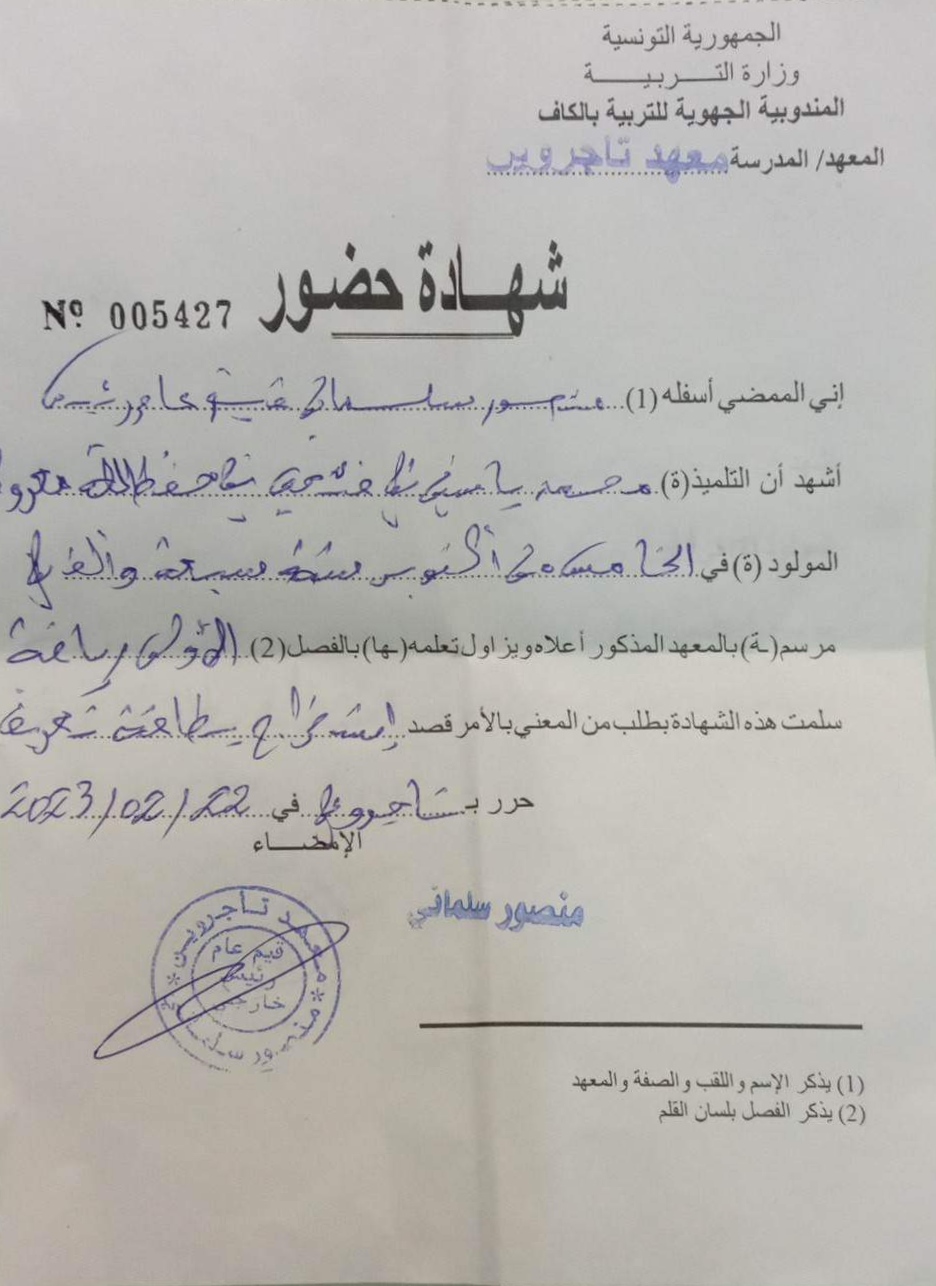 الجمهورية التونسية
وزارة التـــربيـــــة
المندوبية الجهوية للتربية بالكاف
المعهد/ المدرسة معهد تاجروين
شهـــادة حضـور
Nº 005427
إني الممضي أسفله (1) منصور سلماني قيم عام رئيس
أشهد أن التلميذ(ة) محمد ياسين بن
المولود (ة) في الخامس من أكتوبر سنة سبعة وألفين
مرسم(ـة) بالمعهد المذكور أعلاه ويزاول تعلمه(ـها) بالفصل(2) الأولى رياضة
سلمت هذه الشهادة بطلب من المعني بالأمر قصد إستخراج بطاقة تعريف
حرر بـ تاجروين في 2023/02/22
الإمضـــاء
منصور سلماني
معهد تاجروين
قيم عام
رئيس
خارجي
منصور سلماني
(1) يذكر الإسم واللقب والصفة والمعهد
(2) يذكر الفصل بلسان القلم